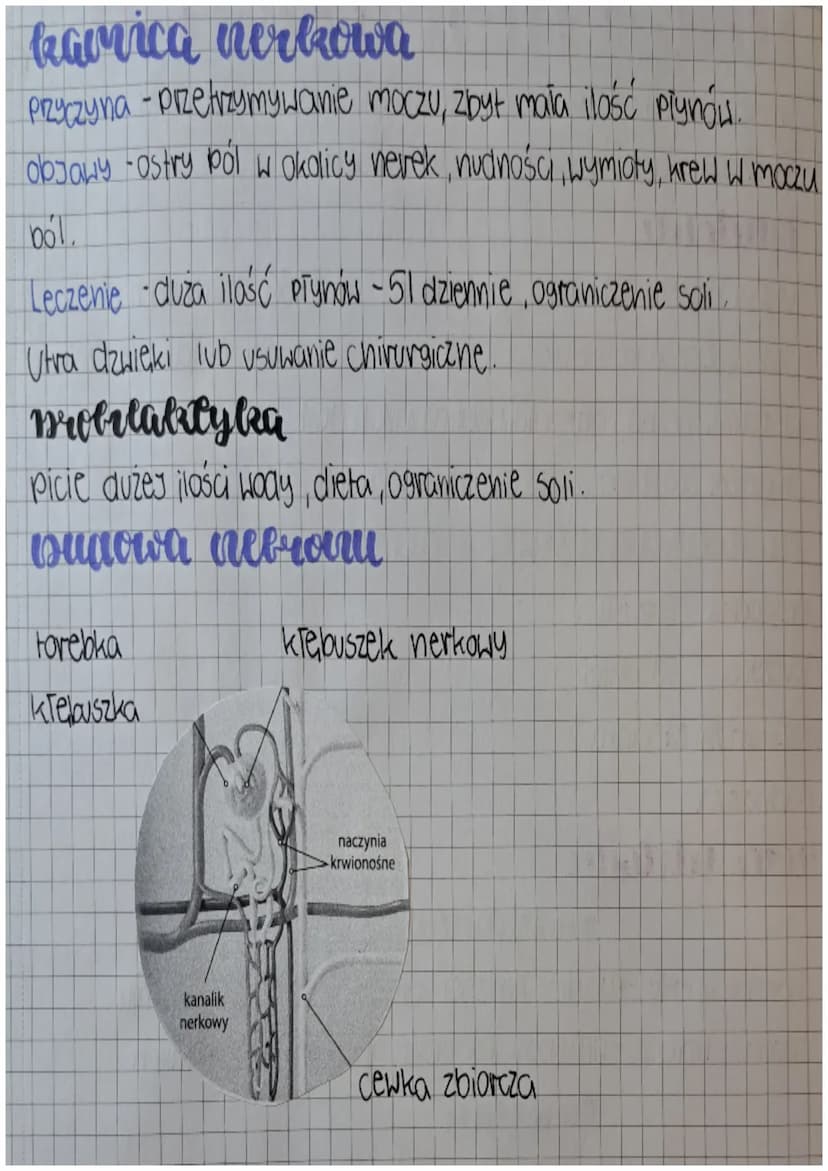 kamica nerkowa
przyczyna - przetrzymywanie moczu, zbyt mała ilość płynów.
objawy - ostry ból w okolicy nerek, nudności, wymioty, krew w moczu
ból.
Leczenie - duża ilość płynów - 5l dziennie, ograniczenie soli,
Utra dzwięki lub usuwanie chirurgiczne.
profilaktyka
picie dużej ilości wody, dieta, ograniczenie soli.
budowa nefronu
torebka kłębuszek nerkowy
kłębuszka
naczynia
krwionośne
kanalik
nerkowy
cewka zbiorcza